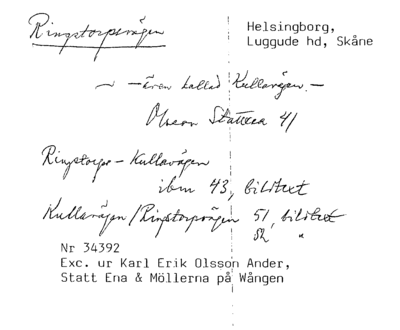 Ringstorpsvägen
Helsingborg,
Luggude hd, Skåne
~ – även kallad Kullavägen. –
Olsson Stattena 41
Ringstorps – Kullavägen
ibm 43, bildtext
Kullavägen/Ringstorpsvägen 51, bildtext
52 "
Nr 34392
Exc. ur Karl Erik Olsson Ander,
Statt Ena & Möllerna på Wången